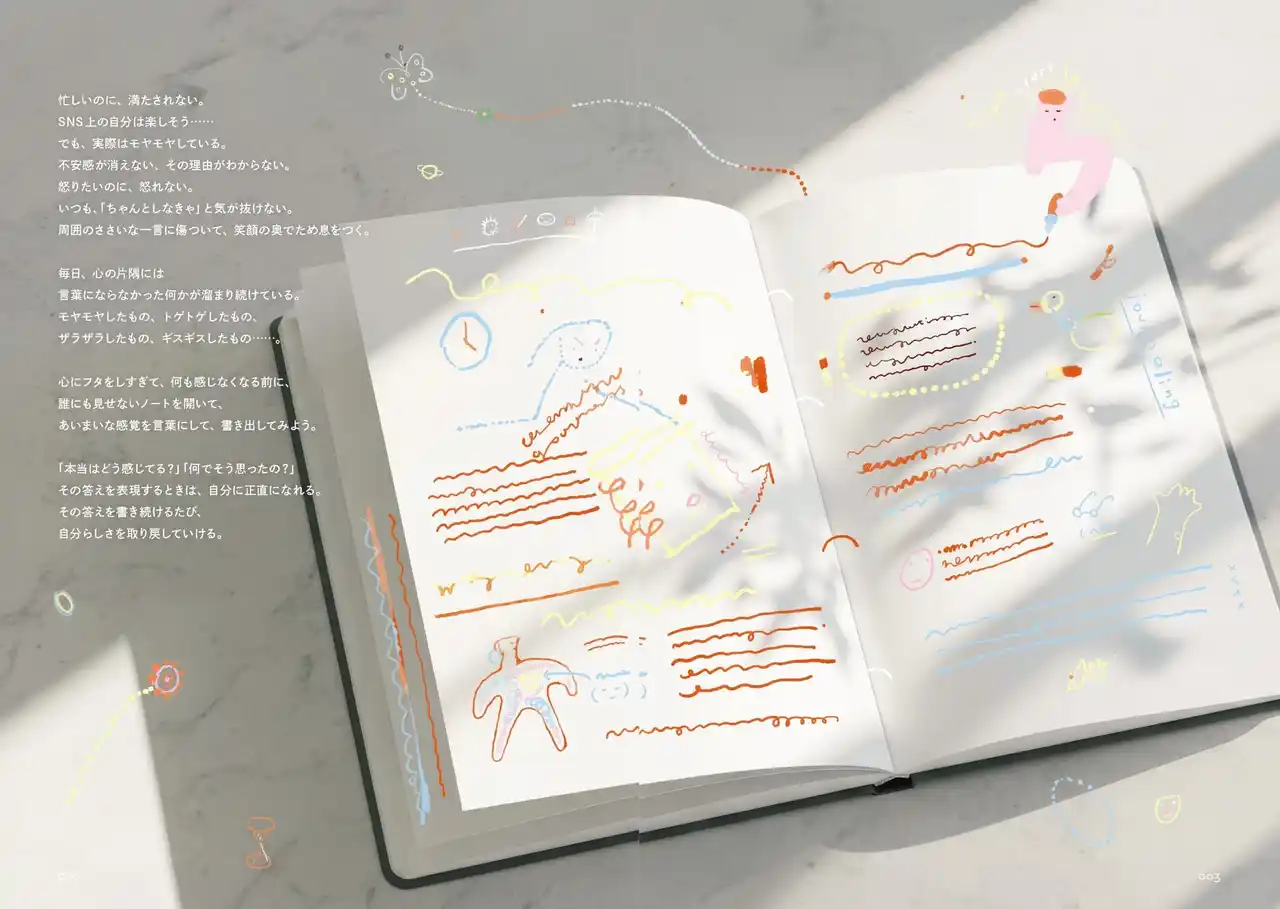 忙しいのに、満たされない。
SNS上の自分は楽しそう……
でも、実際はモヤモヤしている。
不安感が消えない、その理由がわからない。
怒りたいのに、怒れない。
いつも、「ちゃんとしなきゃ」と気が抜けない。
周囲のささいな一言に傷ついて、笑顔の奥でため息をつく。
毎日、心の片隅には
言葉にならなかった何かが溜まり続けている。
モヤモヤしたもの、トゲトゲしたもの、
ザラザラしたもの、ギスギスしたもの……。
心にフタをしすぎて、何も感じなくなる前に、
誰にも見せないノートを開いて、
あいまいな感覚を言葉にして、書き出してみよう。
「本当はどう感じてる?」「何でそう思ったの?」
その答えを表現するときは、自分に正直になれる。
その答えを書き続けるたび、
自分らしさを取り戻していける。
journaling
003